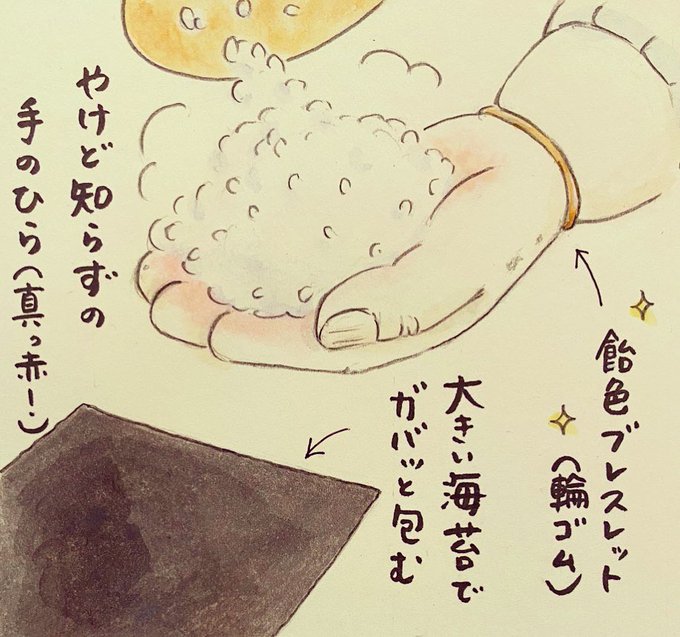 飴色ブレスレット
（輪ゴム）
大きい海苔で
ガバッと包む
やけど知らずの
手のひら（真っ赤！）